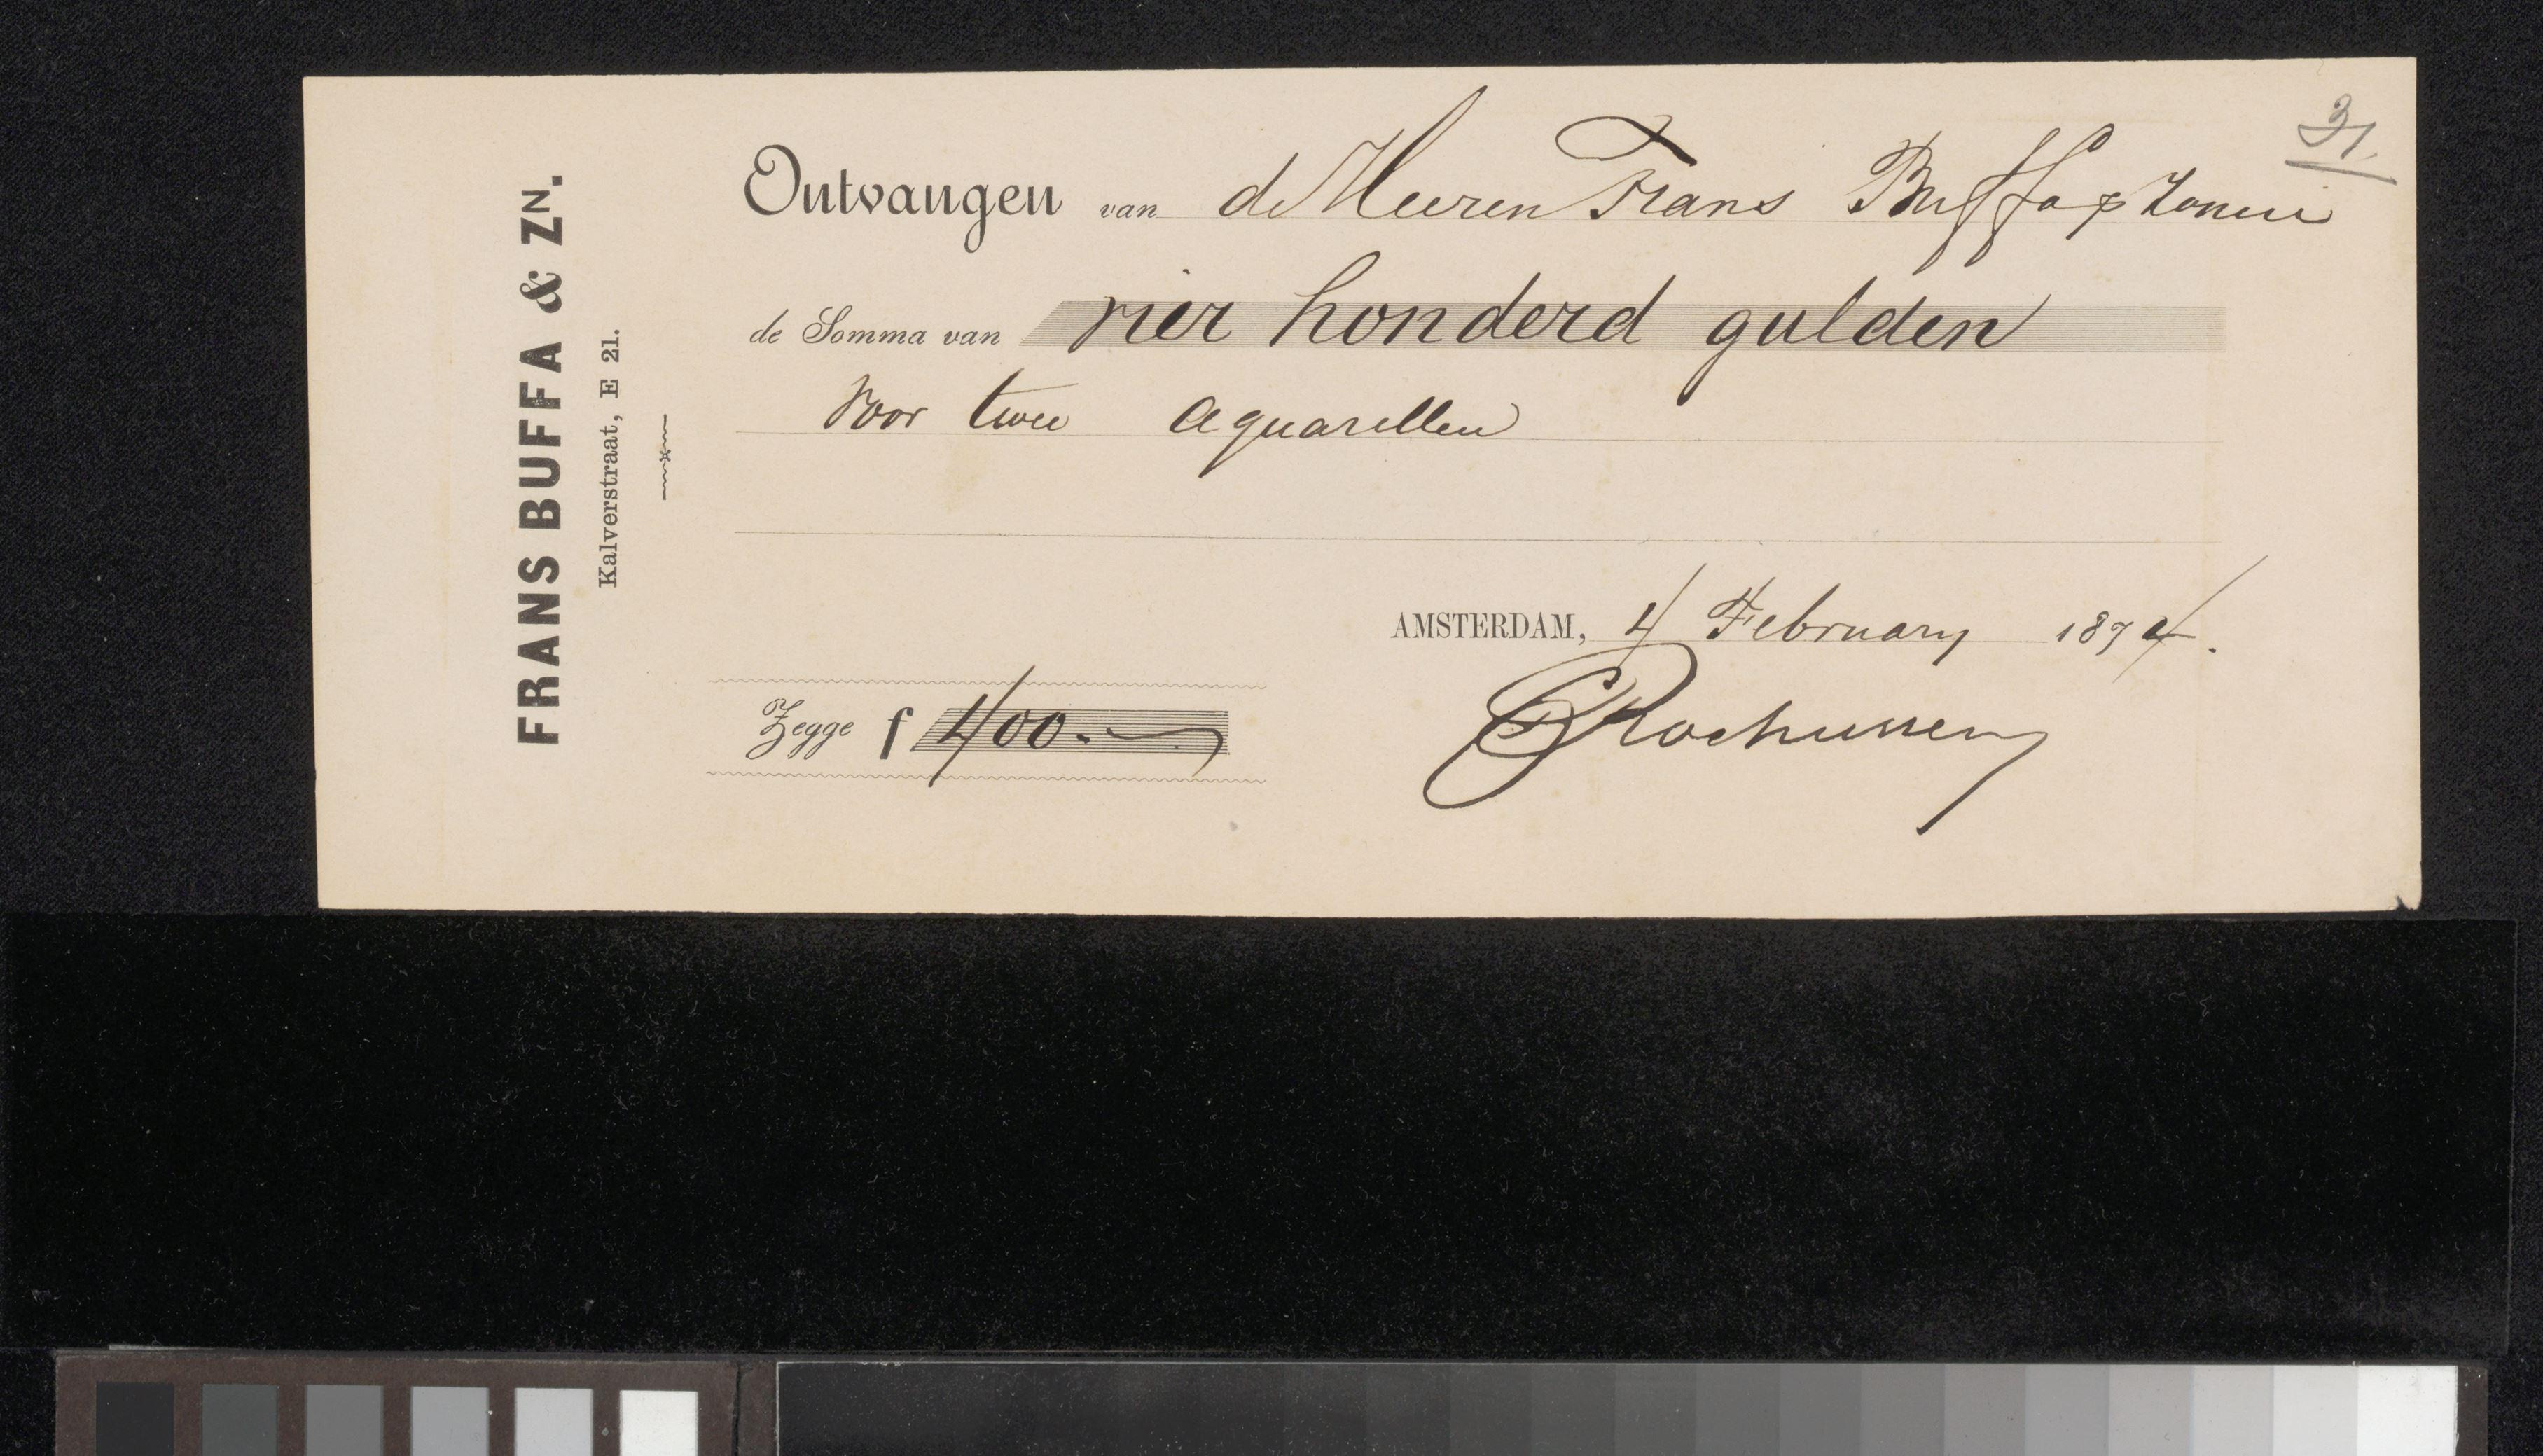 FRANS BUFFA & ZN.
Kalverstraat, E 21.
31
Ontvangen van de Heeren Frans Buffa & Zonen
de Somma van vier honderd gulden
voor twee aquarellen
AMSTERDAM, 4 February 1894.
Zegge f 400.-
CRochussen